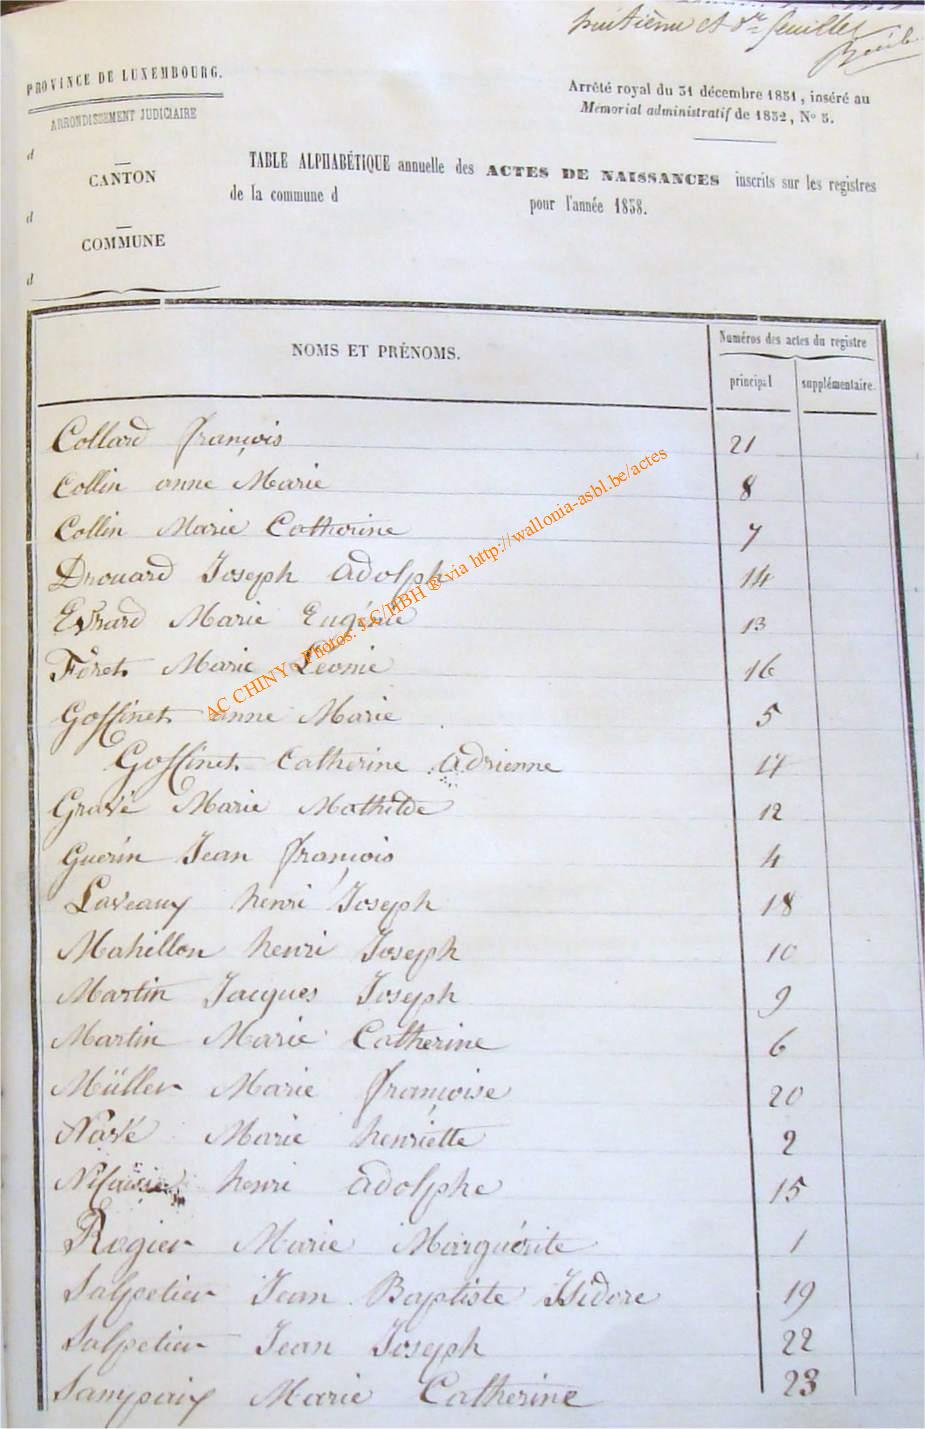 huitième et dr feuillet
PROVINCE DE LUXEMBOURG.
ARRONDISSEMENT JUDICIAIRE
d
CANTON
d
COMMUNE
d
Arrêté royal du 31 décembre 1831, inséré au
Mémorial administratif de 1832, No 5.
TABLE ALPHABÉTIQUE annuelle des ACTES DE NAISSANCES inscrits sur les registres
de la commune d pour l'année 1838.
NOMS ET PRÉNOMS.
Numéros des actes du registre
principal supplémentaire.
Collard françois 21
Collin anne Marie 8
Collin Marie Catherine 7
Drouard Joseph adolph 14
Evrard Marie Eugénie 13
Föret Marie Leonie 16
Goffinet anne Marie 5
Goffinet Catherine adrienne 17
Gravé Marie Mathilde 12
Guérin Jean françois 4
Laveaux henri Joseph 18
Mahillon henri Joseph 10
Martin Jacques Joseph 9
Martin Marie Catherine 6
Müller Marie françoise 20
Navé Marie henriette 2
henri adolphe 15
Rogier Marie Marguérite 1
Salpetier Jean Baptiste Isidore 19
Salpetier Jean Joseph 22
Sampaix Marie Catherine 23
AC CHINY - Photos: J-C/HBH ® via http://wallonia-asbl.be/actes